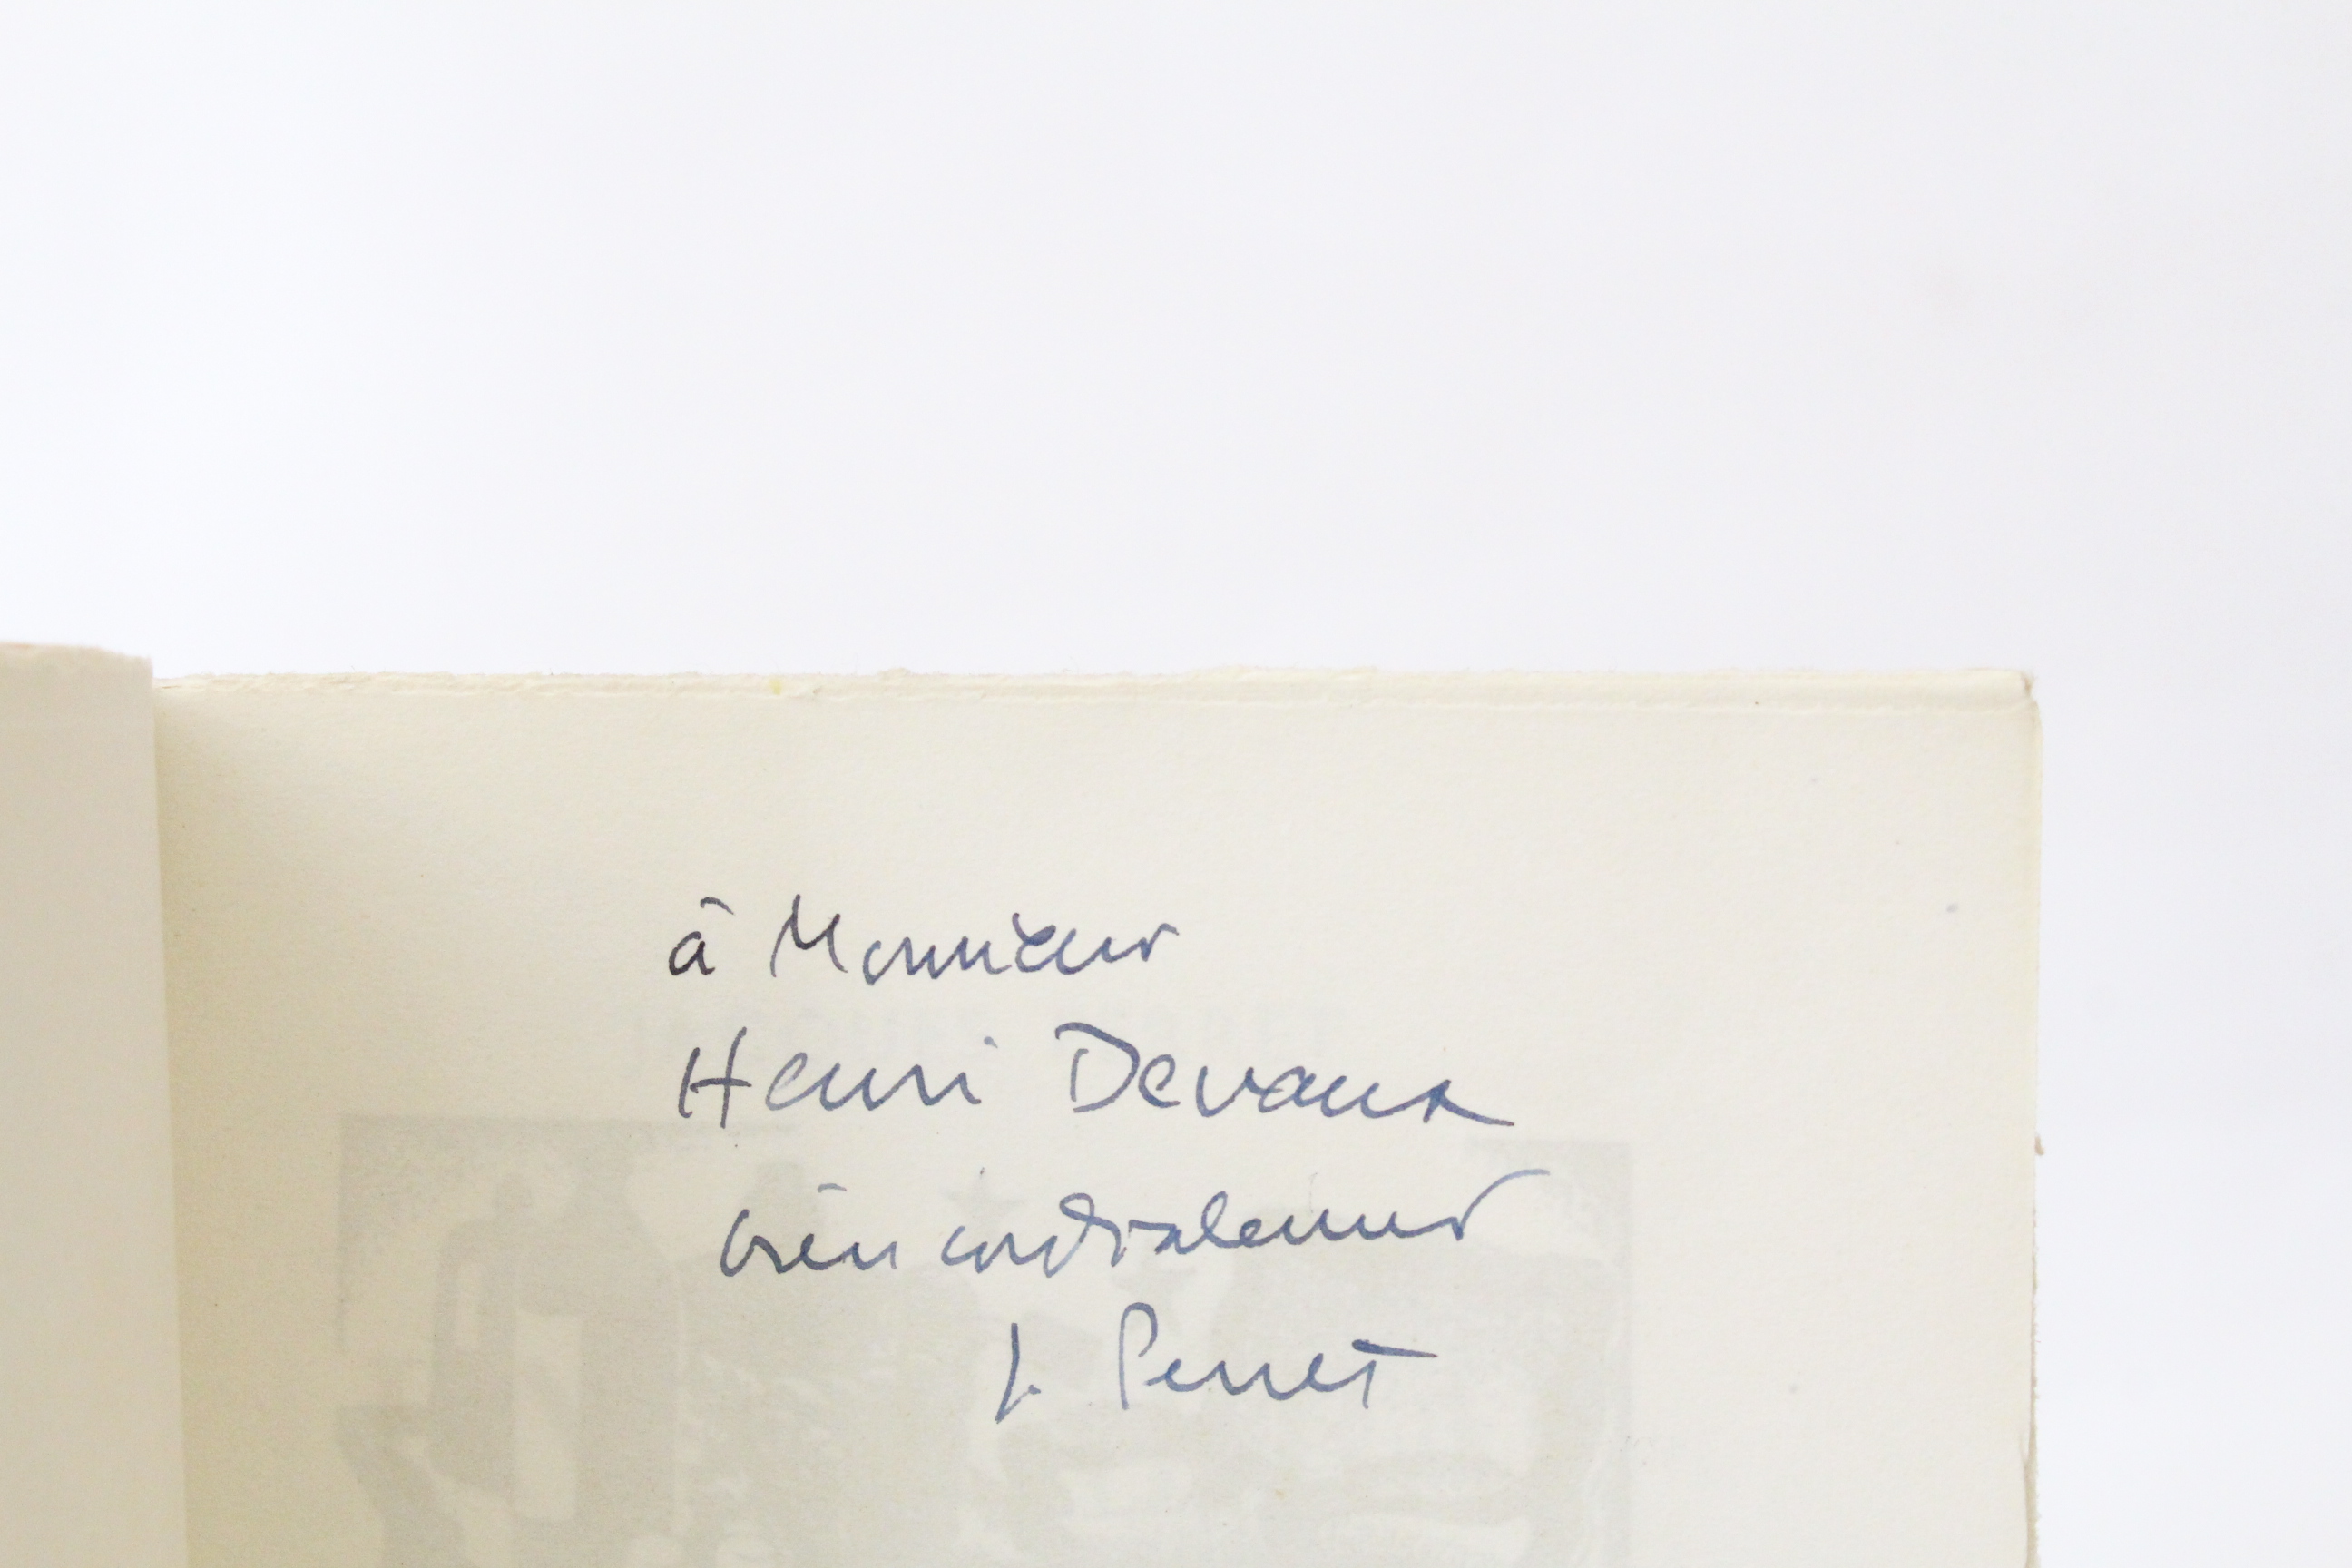 à Monsieur
Henri Devaux
bien cordialement
J. Perret